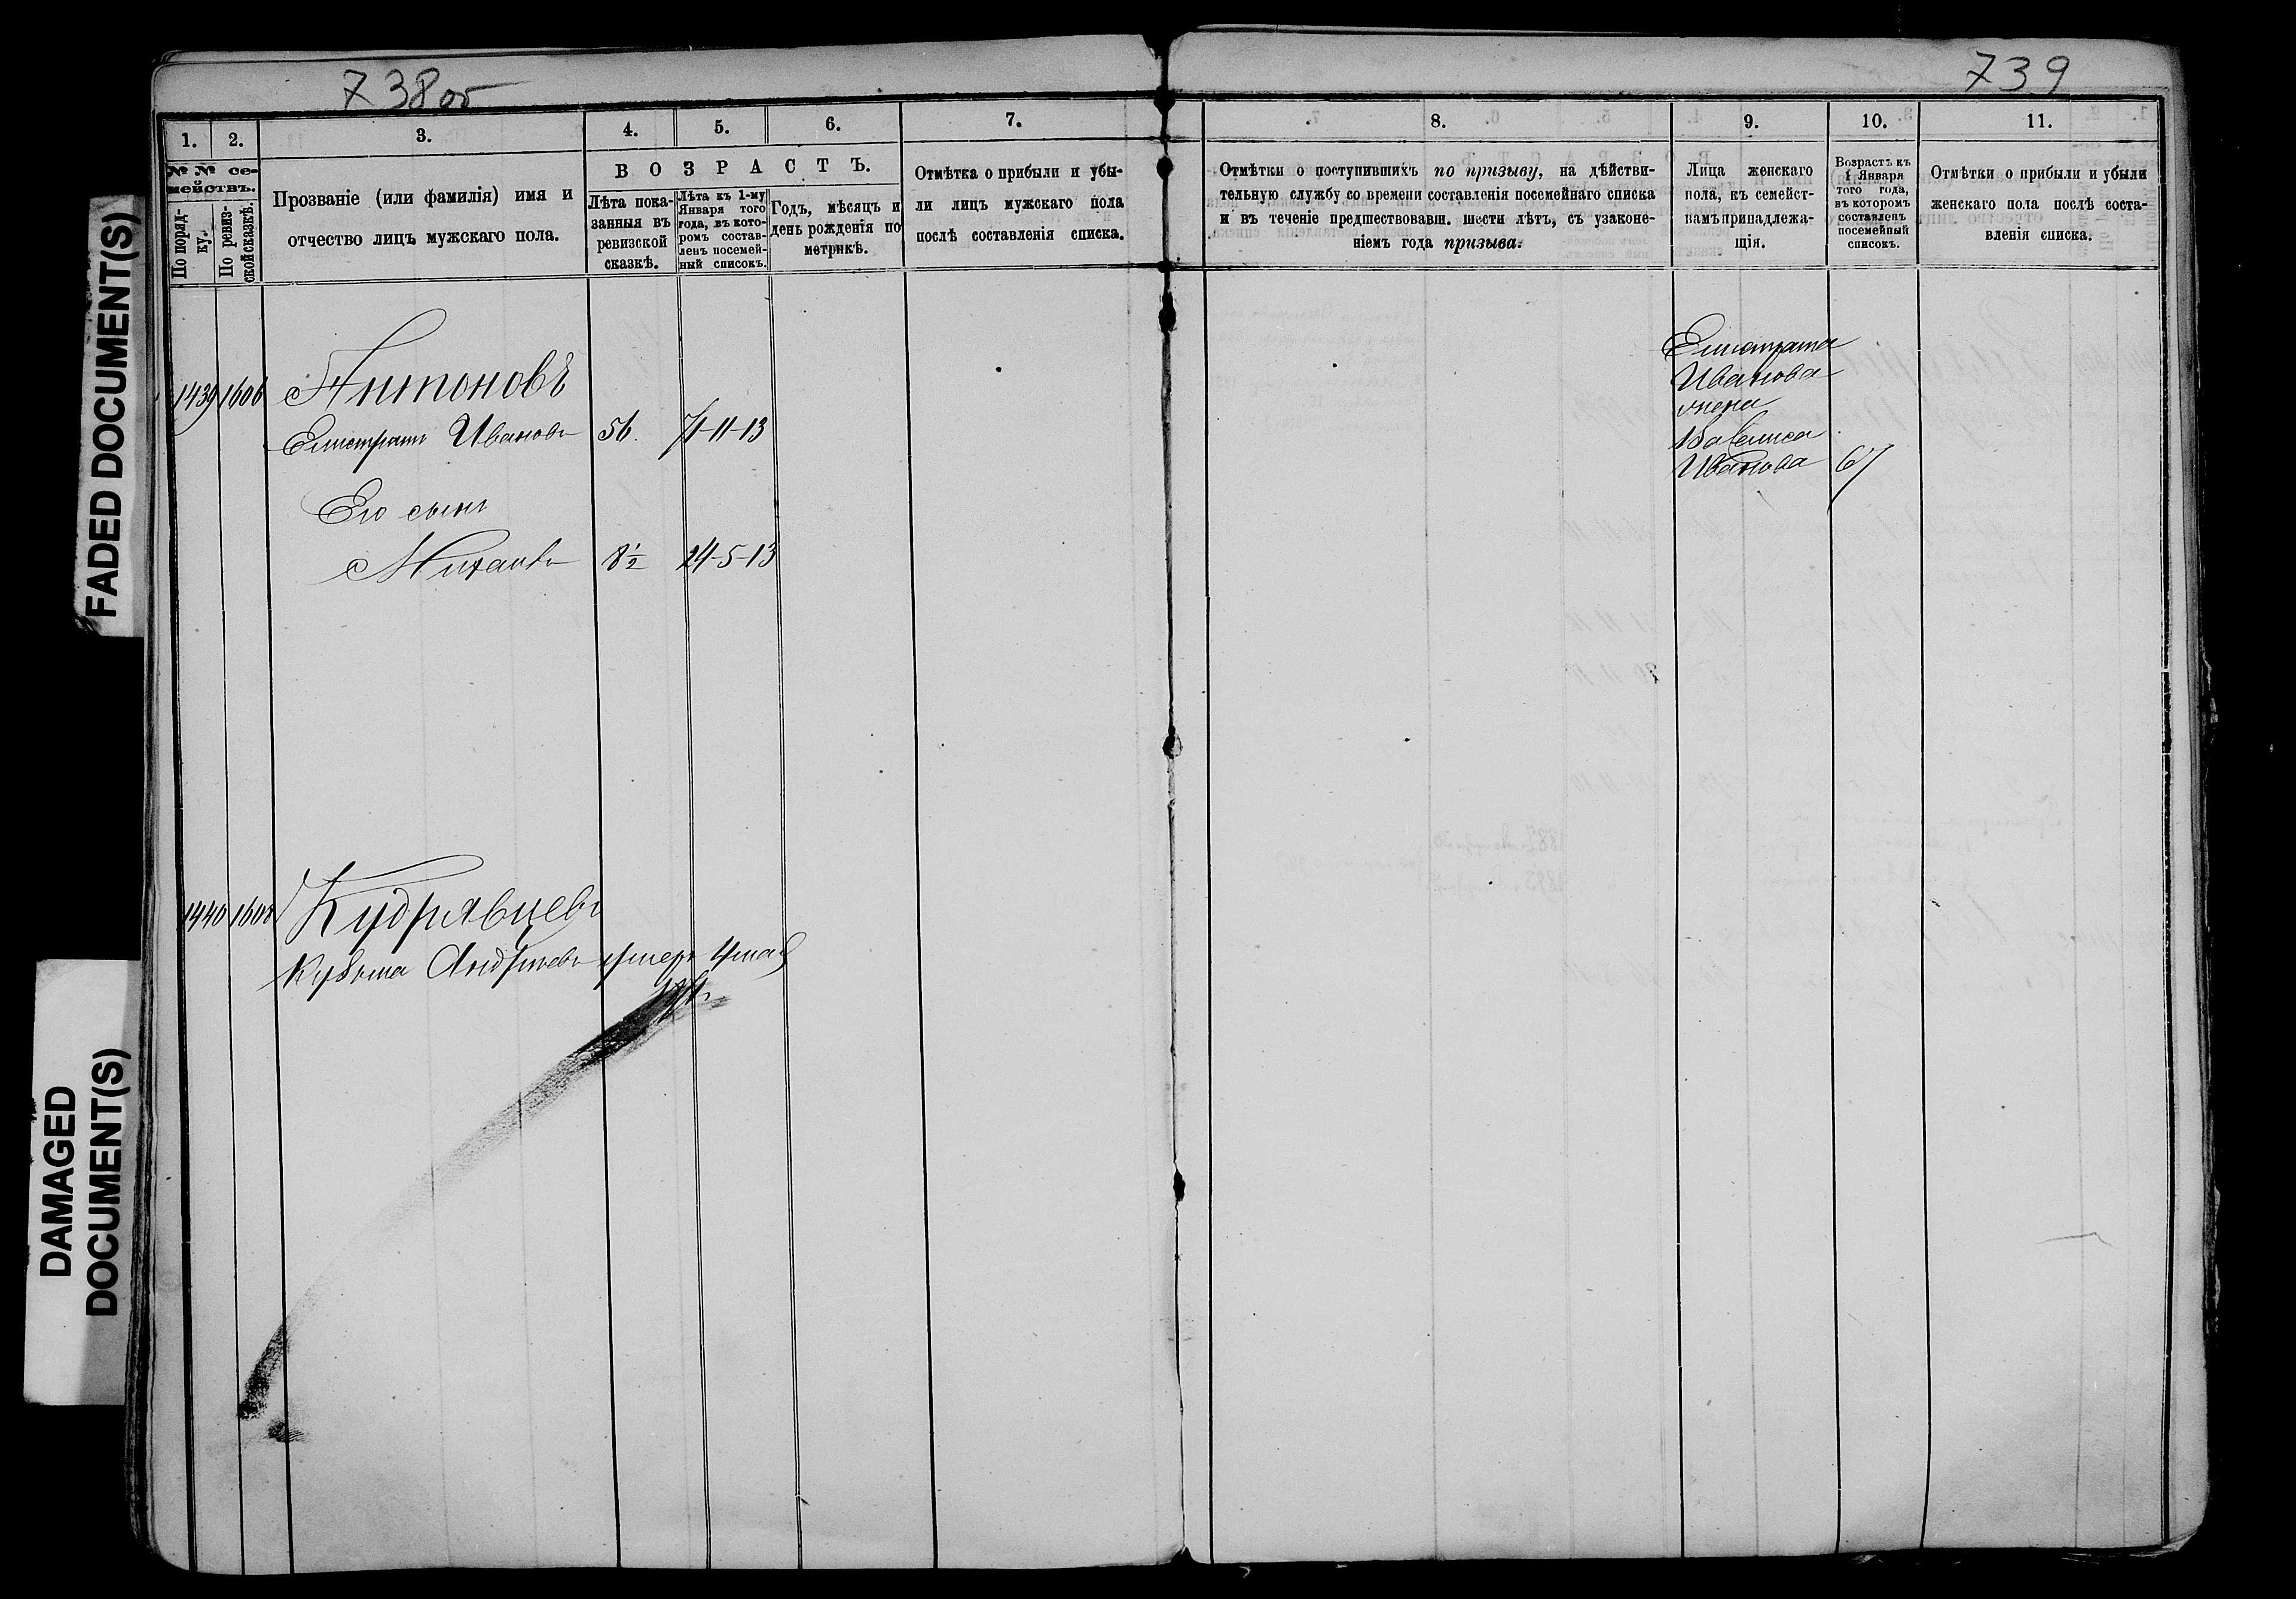 738об
739
1.
2.
3.
4.
5.
6.
7.
8.
9.
10.
11.
№ № се-
мействъ.
По поряд-
ку.
По ревиз-
ской сказкѣ.
Прозваніе (или фамилія) имя и
отчество лицъ мужскаго пола.
ВОЗРАСТЪ.
Лѣта пока-
занныя въ
ревизской
сказкѣ.
Лѣта къ 1-му
Января того
года, въ кото-
ромъ состав-
ленъ посемей-
ный списокъ.
Годъ, мѣсяцъ и
день рожденія по
метрикѣ.
Отмѣтка о прибыли и убы-
ли лицъ мужскаго пола
послѣ составленія списка.
Отмѣтки о поступившихъ по призыву, на дѣйстви-
тельную службу со времени составленія посемейнаго списка
и въ теченіе предшествовавш. шести лѣтъ, съ узаконе-
ніемъ года призыва.
Лица женскаго
пола, къ семейст-
вамъ принадлежа-
щія.
Возрастъ къ
1 Января
того года,
въ которомъ
составленъ
посемейный
списокъ.
Отмѣтки о прибыли и убыли
женскаго пола послѣ соста-
вленія списка.
1439 1606 Антоновъ
Елистратъ Ивановъ 56. 71-11-13
Его сынъ
Михаилъ 8½ 24-5-13
Елистрата
Иванова
жена
Василиса
Иванова 67
1440 1608 Кудрявцевъ
Кузьма Андреевъ умеръ 4 мая
FADED DOCUMENT(S)
DAMAGED
DOCUMENT(S)